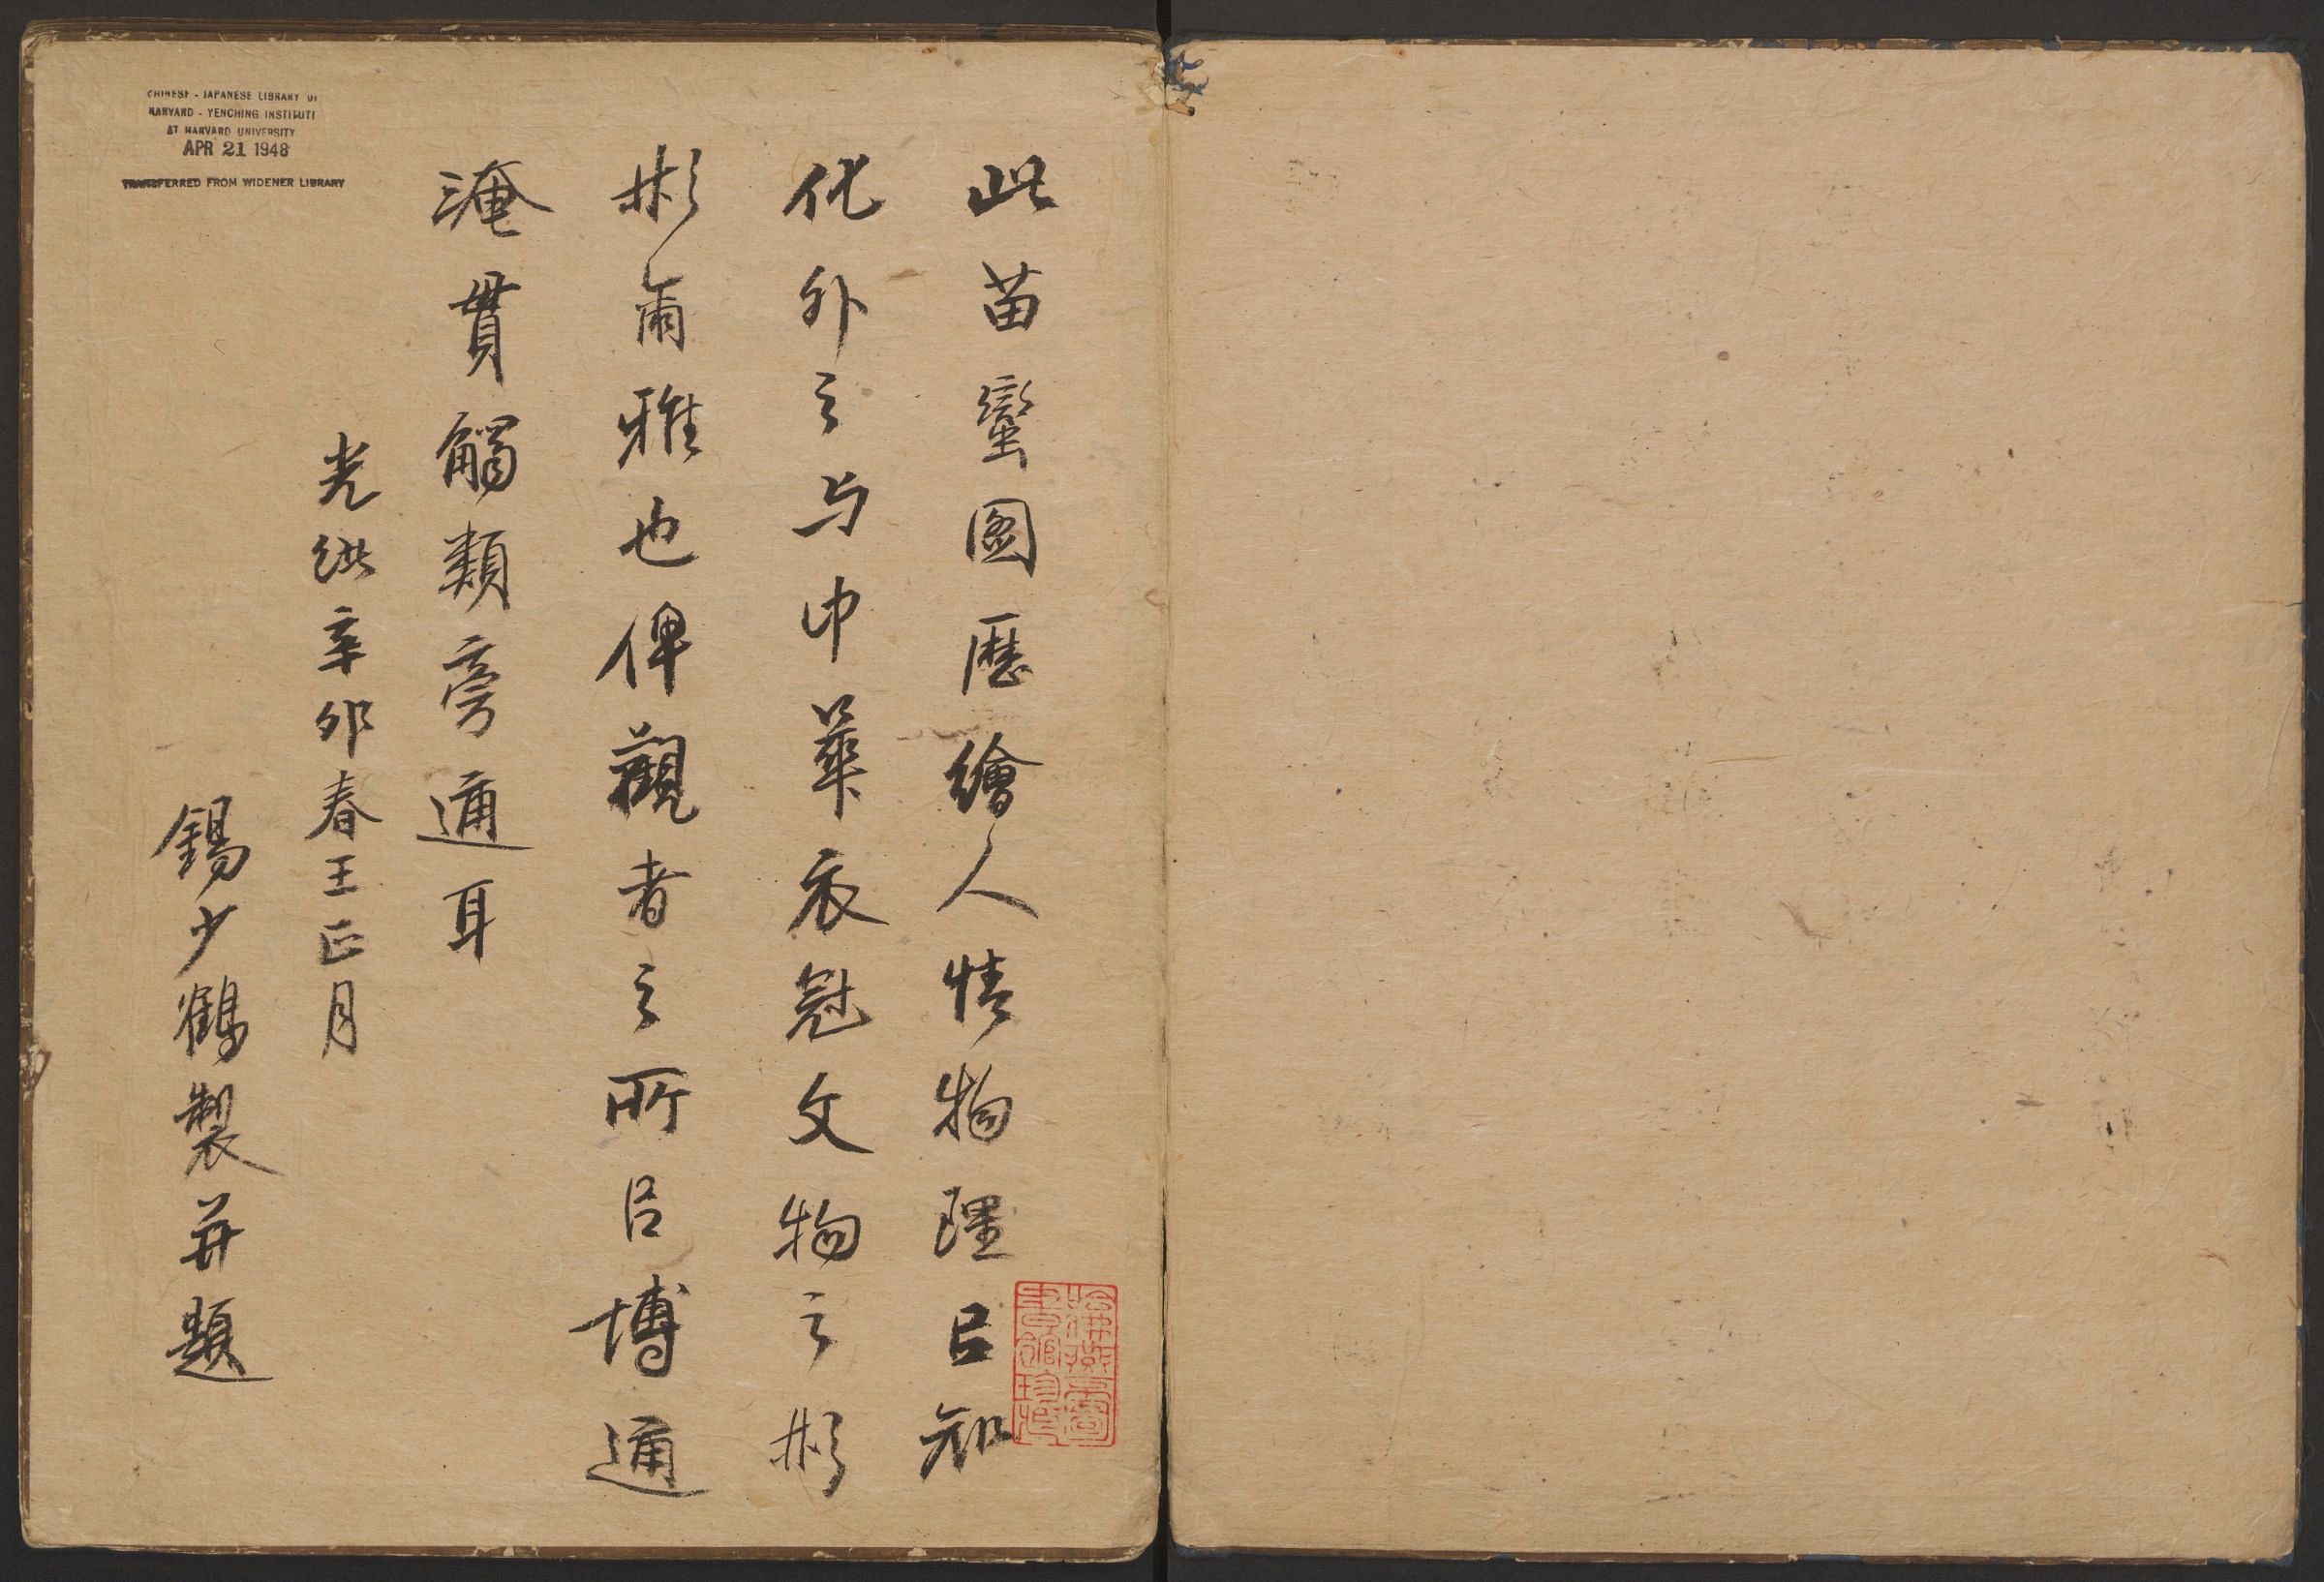 此苗蠻圖歷繪人情物理㠯知
化外之与中華衣冠文物之彬
彬爾雅也俾觀者之所㠯博通
淹貫觸類旁通耳
光緒辛卯春王正月
錫少鶴製并題
哈佛燕京圖
書館珍藏
CHINESE - JAPANESE LIBRARY OF
HARVARD - YENCHING INSTITUTE
AT HARVARD UNIVERSITY
APR 21 1948
TRANSFERRED FROM WIDENER LIBRARY